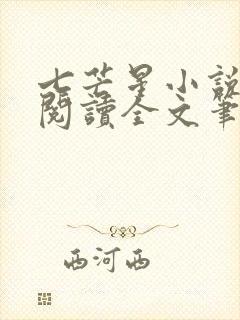 七芒星小說
閱讀全文筆
西河西